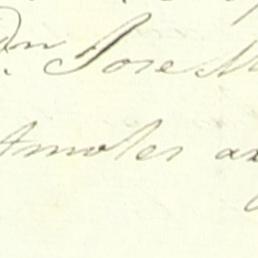 Dn Jose M
Amoles a